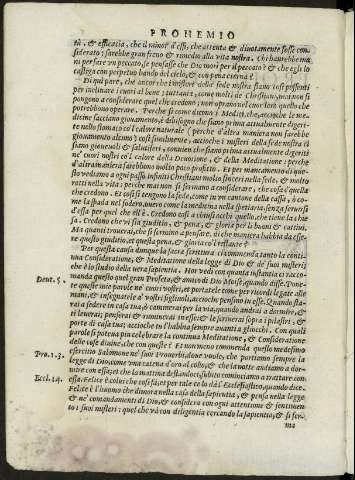 PROHEMIO
tù, & efficatia, che il minor d'essi, che attenta & diuotamente fosse con-
siderato; sarebbe gran freno & rimedio alla vita nostra. Chi haurebbe ma
ni per fare vn peccato, se pensasse che Dio morì per il peccato? & che egli lo
castiga con perpetuo bando del cielo, & con pena eterna?
Di qui pare, che ancor che i misteri della fede nostra siano così possenti
per inclinare i cuori al bene; tuttauia, come molti de Christiani, mai non si
pongono a considerare quel che credono; non oprano nel cuor loro quello che
potrebbono operare. Perche si come dicono i Medici, che, accioche le me
dicine facciano giouamento, è di bisogno che siano prima attualmente digerite
nello stomaco col calore naturale (perche d'altra maniera non sarebbe
giouamento alcuno) così similmente, accioche i misteri della fede nostra ci
siano gioueuoli & salutiferi, conuien che siano prima attualmente digeriti
ne' cuori nostri col calore della Deuotione, & della Meditatione: perche
d'altra maniera sarebbono molto poco profitto. Et per mancamento di que-
sto vediamo a ogni passo infiniti Christiani molto sinceri nella fede, & molto
rotti nella vita: perche mai non si fermano a considerare, che cosa è quella
che credono. Et così si tengono la fede, come in vn cantone della cassa, ò co-
me la spada nel fodero, ouero come la medicina nella speciaria senza seruirsi
d'essa per quel che ell'è. Credono così a chiusi occhi quello, che tiene la chie
sa. Credono che vi sia giuditio, & pena, & gloria per li buoni & cattiui.
Ma quanti trouerai, che si fermino a pensare, di che maniera habbia da esse-
re questo giuditio, et quella pena, & gloria co'l restante?
Per questa causa dunque la sacra scrittura ci commenda tanto la conti-
nua Consideratione, & Meditatione della legge di Dio & de' suoi misterij
che è lo studio della uera sapientia. Hor vedi con quanta instantia ci racco-
Deut. 5. manda questo quel gran Profeta, & amico di Dio Mosè, quando disse. Pone-
te queste mie parole ne' cuori uostri, et portatele come per ricordi legate alle
mani, & insegnatele a' vostri figliuoli, accioche pensino in esse. Quando sta-
rai a sedere in casa tua, ò caminerai per la via, quando andrai a dormire, &
ti leuerai; penserai & ruminerai in esse: & le scriuerai sopra i pilastri, &
porte di casa tua; accioche tu l'habbia sempre auanti a gli occhi. Con quali
parole si poteua più celebrare la continoua Meditatione, & Consideratione
delle cose diuine, che con queste? Et non meno commenda questo medesimo
Pro. 1.3. essercitio Salomone ne' suoi Prouerbi, doue vuole, che portiamo sempre la
legge di Dio come vna catena d'oro al collo; & che la notte andiamo a dor-
mire con essa, et che la mattina destandoci, subito cominciamo a trattare con
Eccl. 14. essa. Felice è colui che così fà, et per tale ce lo dà l'Ecclesiastico, quando dice.
Felice è l'huomo che dimora nella casa della sapientia, & pensa nella legge
& ne' comandamenti di Dio, & considera con ogni attentione & sentimen-
to i suoi misteri: quel che và con diligentia cercando la sapientia, & si fer-
ma